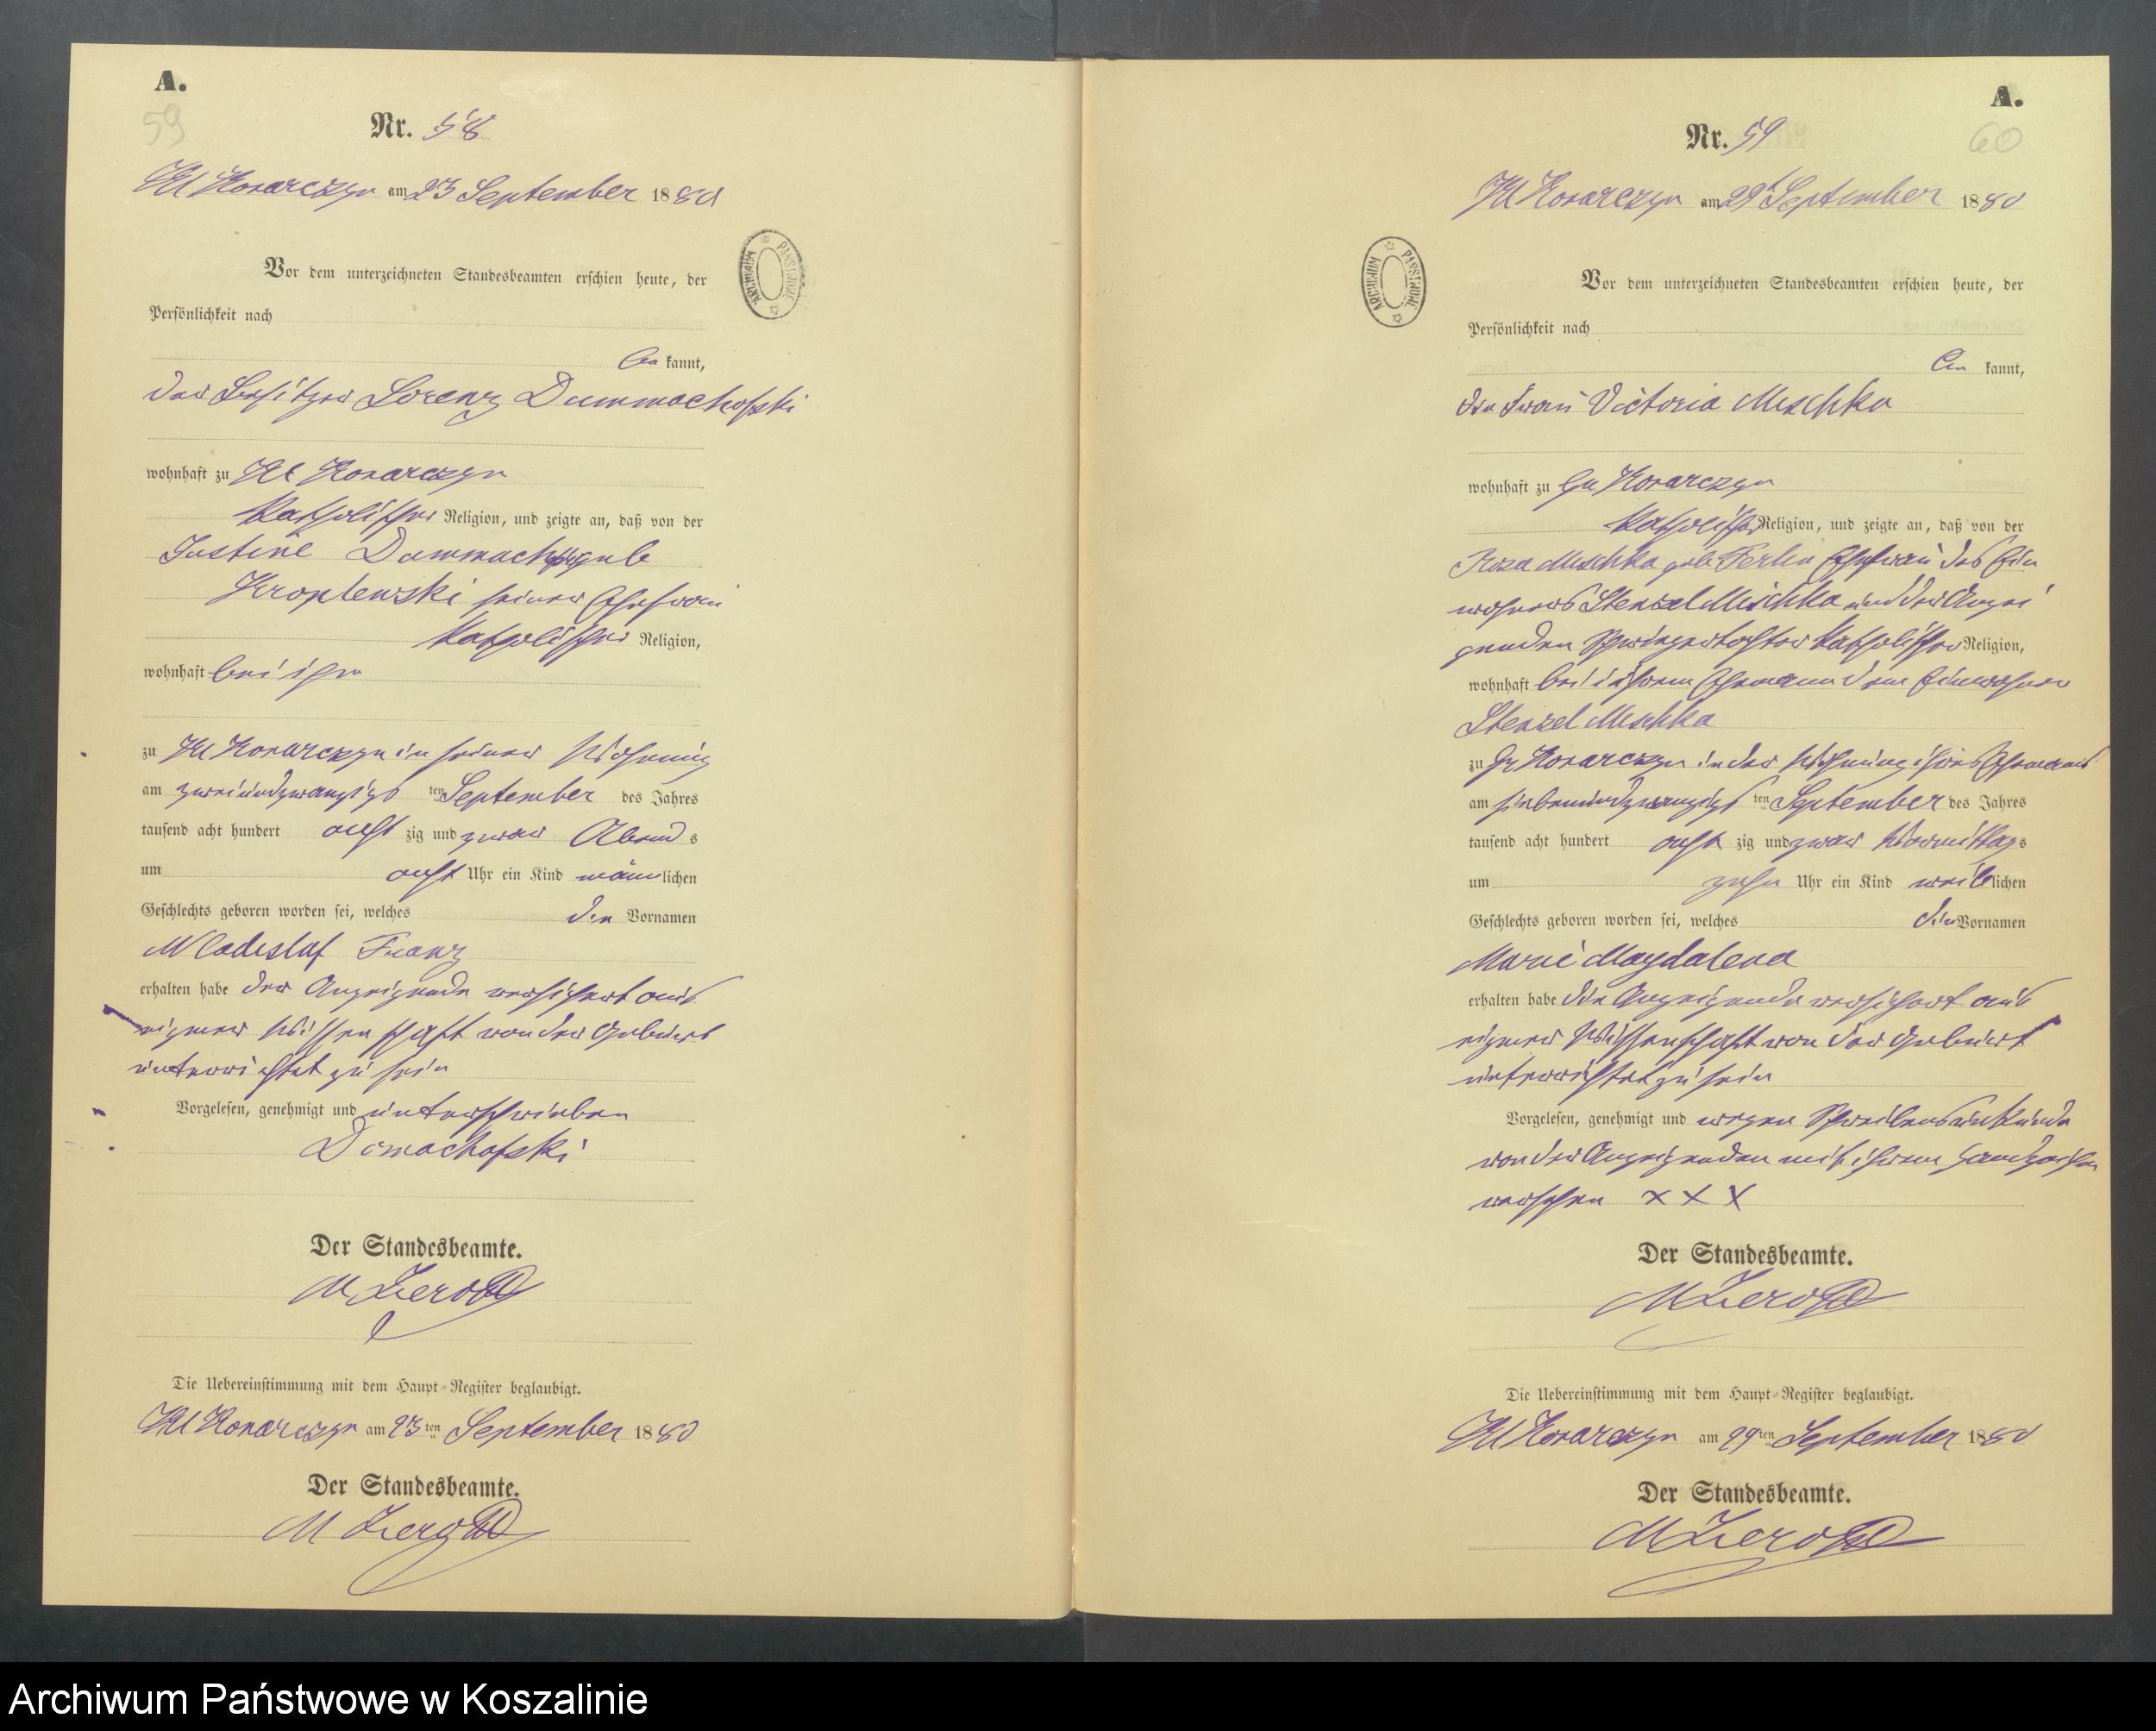 A.
59
Nr. 58
Kl Konarczyn am 23 September 1880
Vor dem unterzeichneten Standesbeamten erschien heute, der
Persönlichkeit nach
be kannt,
der Besitzer Lorenz Dummachofski
wohnhaft zu Kl Konarczyn
katholischer Religion, und zeigte an, daß von der
Justine Dummachofski geb
Kroplewski seiner Ehefrau
katholischer Religion,
wohnhaft bei ihm
zu Kl Konarczyn in seiner Wohnung
am zweiundzwanzigs ten September des Jahres
tausend acht hundert acht zig und zwar Abend s
um acht Uhr ein Kind männlichen
Geschlechts geboren worden sei, welches den Vornamen
Wladislaf Franz
erhalten habe der Anzeigende versichert aus
eigener Wissenschaft von der Geburt
unterrichtet zu sein
Vorgelesen, genehmigt und unterschrieben
Domachofski
Der Standesbeamte.
Die Uebereinstimmung mit dem Haupt-Register beglaubigt.
Kl Konarczyn am 23 ten September 1880
Der Standesbeamte.
A.
60
Nr. 59
Kl Konarczyn am 29t September 1880
Vor dem unterzeichneten Standesbeamten erschien heute, der
Persönlichkeit nach
be kannt,
die Frau Victoria Meschka
wohnhaft zu Gr Konarczyn
katholischer Religion, und zeigte an, daß von der
Roza Meschka geb Ferlin Ehefrau des Ein
wohners Stenzel Mischka und der Anzei
genden Schwiegertochter katholischer Religion,
wohnhaft bei ihrem Ehemann dem Einwohner
Stenzel Meschka
zu Gr Konarczyn in der Wohnung ihres Ehemanns
am siebenundzwanzigs ten September des Jahres
tausend acht hundert acht zig und zwar Vormittags
um zehn Uhr ein Kind weiblichen
Geschlechts geboren worden sei, welches die Vornamen
Marie Magdalena
erhalten habe die Anzeigende versichert aus
eigener Wissenschaft von der Geburt
unterrichtet zu sein
Vorgelesen, genehmigt und wegen Schreibensunkunde
von der Anzeigenden mit ihrem Handzeichen
versehen X X X
Der Standesbeamte.
Die Uebereinstimmung mit dem Haupt-Register beglaubigt.
Kl Konarczyn am 29 ten September 1880
Der Standesbeamte.
ARCHIWUM PAŃSTWOWE
ARCHIWUM PAŃSTWOWE
Archiwum Państwowe w Koszalinie